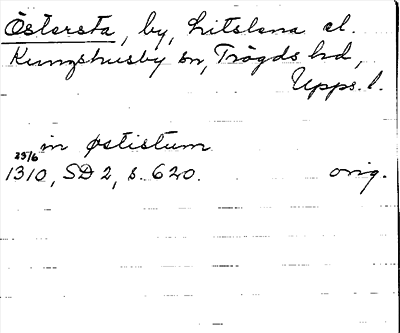 Östersta, by, Litslena el.
Kungshusby sn, Trögds hd,
Upps. l.
in østistum
25/6
1310, SD 2, s. 620. orig.